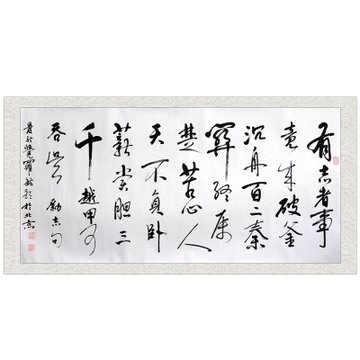 有志者事
竟成破釜
沉舟百二秦
關終属
楚苦心人
天不負卧
薪尝胆三
千越甲可
吞吴 勵志句
於北京